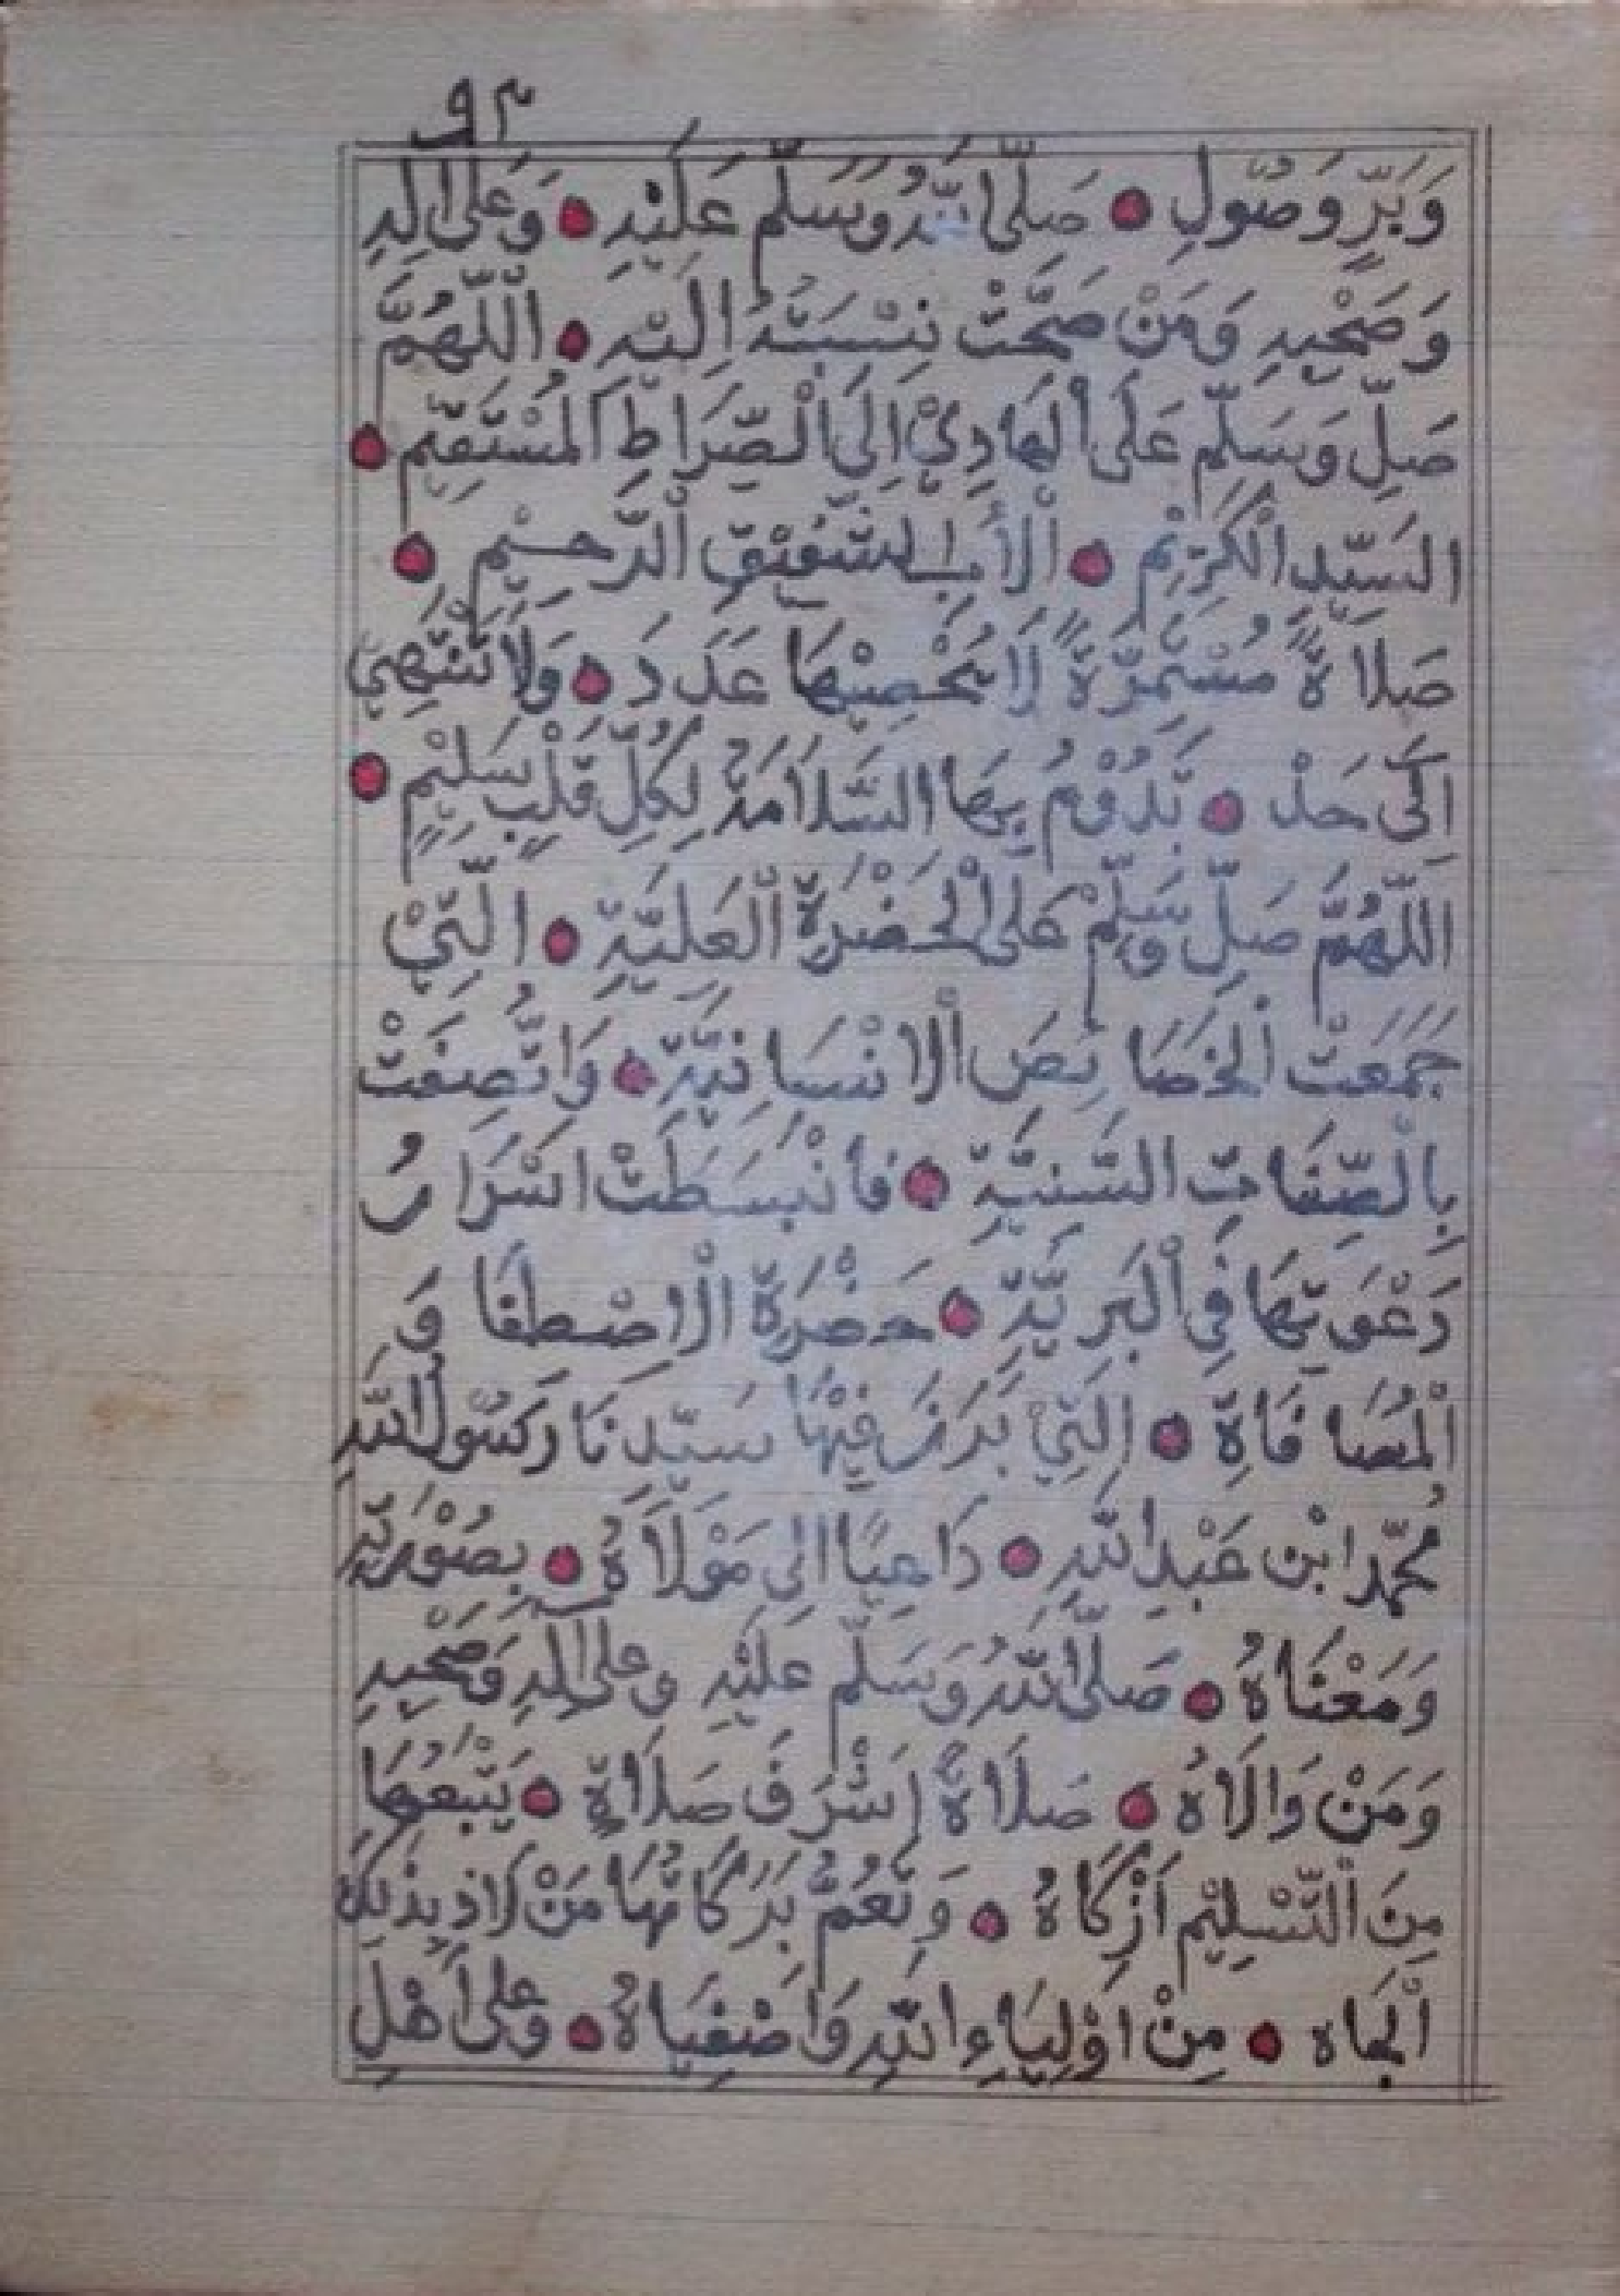 ٩٣
وَبَرٍّ وَصُوْلِ ● صَلَّى اللّٰهُ وَسَلَّمَ عَلَيْهِ ● وَعَلَى اٰلِهِ
وَصَحْبِهِ وَمَنْ صَحَّتْ نِسْبَتُهُ اِلَيْهِ ● اَللّٰهُمَّ
صَلِّ وَسَلِّمْ عَلَى الْهَادِيْ اِلَى الْصِّرَاطِ الْمُسْتَقِيْمِ ●
السَيِّدِ الْكَرِيْمِ ● اَلْاَبِ الشَّفِيْقِ الْرَّحِيْمِ ●
صَلَاةً مُسْتَمِرَّةً لَا يُحْصِيْهَا عَدَدَ ● وَلَا تَنْتَهِيْ
اِلَى حَدْ ● تَدُوْمُ بِهَا السَّلَامَةُ لِكُلِّ قَلْبٍ سَلِيْمٍ ●
اَللّٰهُمَّ صَلِّ وَسَلِّمْ عَلَى الْحَضْرَةِ الْعَلِيَّةِ ● الَّتِيْ
جَمَعَتْ الْخَصَائِصَ الْاِنْسَانِيَّةِ ● وَاتَّصَفَتْ
بِالْصِّفَاتِ السَّنِيَّةِ ● فَانْبَسَطَتْ اَسْرَارُ
دَعْوَتِهَا فِى الْبَرِيَّةِ ● حَضْرَةِ الْاِصْطِفَا وَ
الْمُصَافَاةِ ● الَّتِيْ بَرَزَ فِيْهَا سَيِّدِنَا رَسُوْلُ اللّٰهِ
مُحَمَّد ابْن عَبْدِ اللّٰهِ ● دَاعِيًا اِلَى مَوْلَاهُ ● بِصُوْرَتِهِ
وَمَعْنَاهُ ● صَلَّى اللّٰهُ وَسَلَّمَ عَلَيْهِ وَعَلَى اٰلِهِ وَصَحْبِهِ
وَمَنْ وَالَاهُ ● صَلَاةً اَشْرَفَ صَلَاةٍ ● يَتْبَعُهَا
مِنَ الْتَّسْلِيْمِ اَزْكَاهُ ● وَتَعُمُّ بَرَكَاتُهَا مَنْ لَاذَ بِذٰلِكَ
الْجَاه ● مِنْ اَوْلِيَاءِ اللّٰهِ وَاَصْفِيَاهُ ● وَعَلَى اَهْلِ